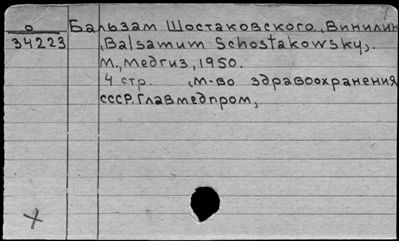 О Бальзам Шостаковского, Винилин
34223 , Balsamum Schostakowsky,.
М., Медгиз, 1950.
4 стр. , М-во здравоохранения
СССР. Главмедпром,